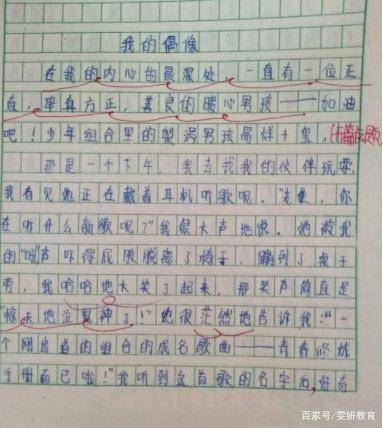 我的偶像
在我的内心的最深处，一直有一位正
直，率真方正，善良的暖心男孩——加油
吧！少年组合里的梨涡男孩
那是一个下午，我去找我的伙伴玩耍，
我看见她正在戴着耳机听歌呢。"你
在听什么新歌呢？"我很大声地说。她被我
的"吼"声吓得屁股脱离了椅子，蹦到了桌子
旁，我哈哈地大笑了起来，那笑声简直是
"惊天地泣鬼神了！"她很茫然地告诉我："一
个刚出道的组合的成名歌曲——青春修炼
手册而已啦！"我听到这首歌的名字后，好奇
百家号/雯妍教育